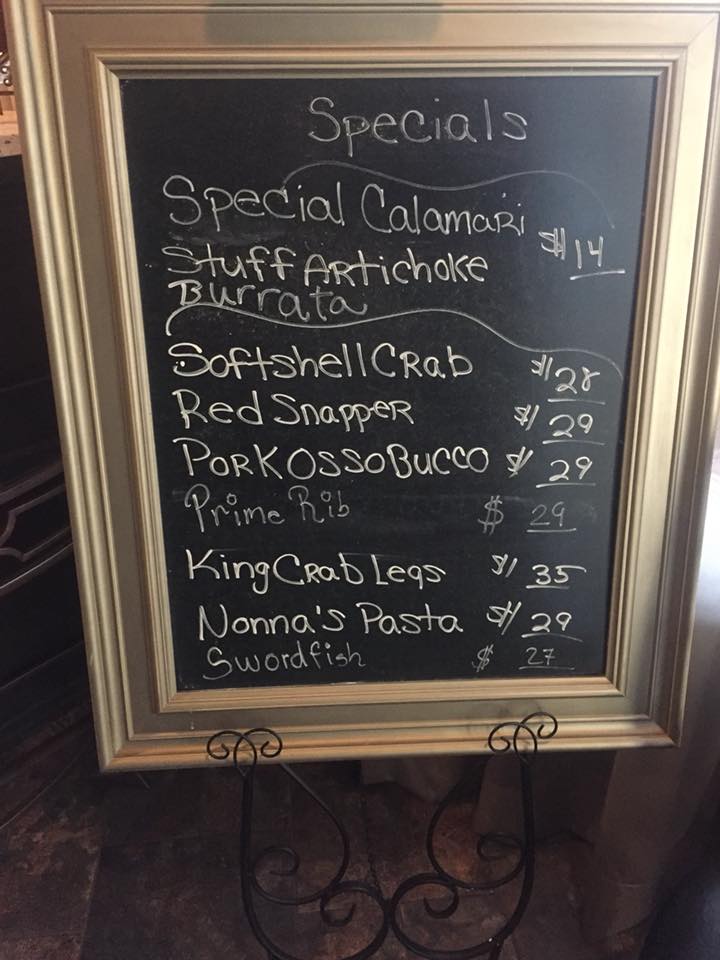 Specials
Special Calamari
$14
Stuff Artichoke
Burrata
Softshell Crab $28
Red Snapper $29
Pork Osso Bucco $29
Prime Rib $29
King Crab Legs $35
Nonna's Pasta $29
Swordfish $27